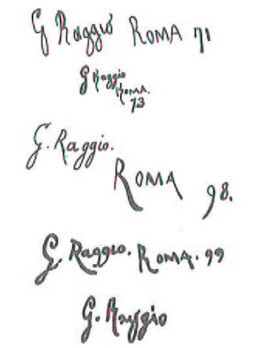 G Raggio ROMA 71
G Raggio
ROMA.
73
G. Raggio.
ROMA
98.
G. Raggio. ROMA. 99
G. Raggio